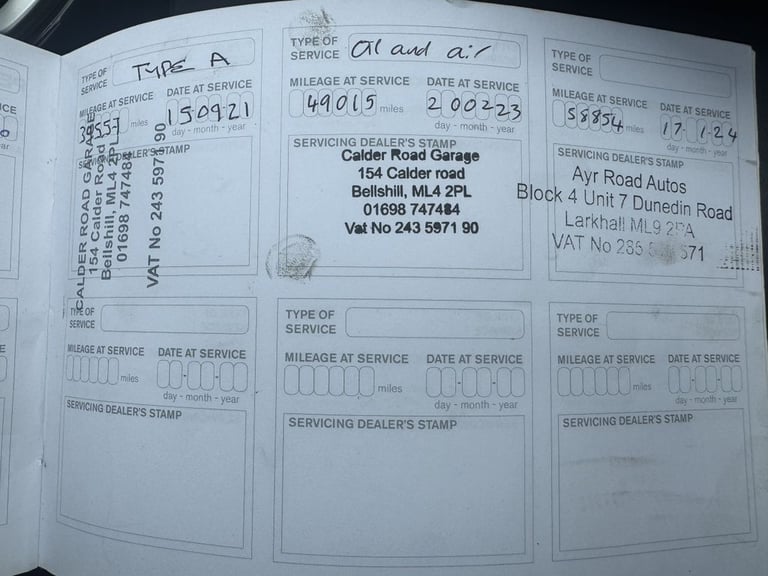 TYPE OF SERVICE TYPE A
MILEAGE AT SERVICE DATE AT SERVICE
39557 miles 150921
day - month - year
SERVICING DEALER'S STAMP
CALDER ROAD GARAGE
154 Calder Road
Bellshill, ML4 2PL
01698 747484
VAT No 243 5971 90
TYPE OF SERVICE Oil and air
MILEAGE AT SERVICE DATE AT SERVICE
49015 miles 200223
day - month - year
SERVICING DEALER'S STAMP
Calder Road Garage
154 Calder road
Bellshill, ML4 2PL
01698 747484
Vat No 243 5971 90
TYPE OF SERVICE
MILEAGE AT SERVICE DATE AT SERVICE
58854 miles 17 1 24
day - month - year
SERVICING DEALER'S STAMP
Ayr Road Autos
Block 4 Unit 7 Dunedin Road
Larkhall ML9 2PA
VAT No 571
TYPE OF SERVICE
MILEAGE AT SERVICE DATE AT SERVICE
miles
day - month - year
SERVICING DEALER'S STAMP
TYPE OF SERVICE
MILEAGE AT SERVICE DATE AT SERVICE
miles
day - month - year
SERVICING DEALER'S STAMP
TYPE OF SERVICE
MILEAGE AT SERVICE DATE AT SERVICE
miles
day - month - year
SERVICING DEALER'S STAMP